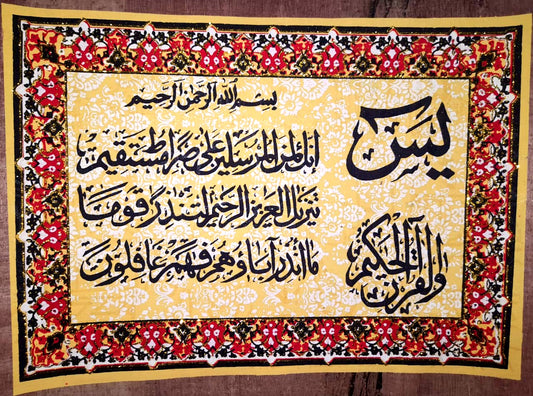 بسم الله الرحمن الرحيم
يس
والقرآن الحكيم
إنك لمن المرسلين على صراط مستقيم
تنزيل العزيز الرحيم لتنذر قوما
ما أنذر آباؤهم فهم غافلون